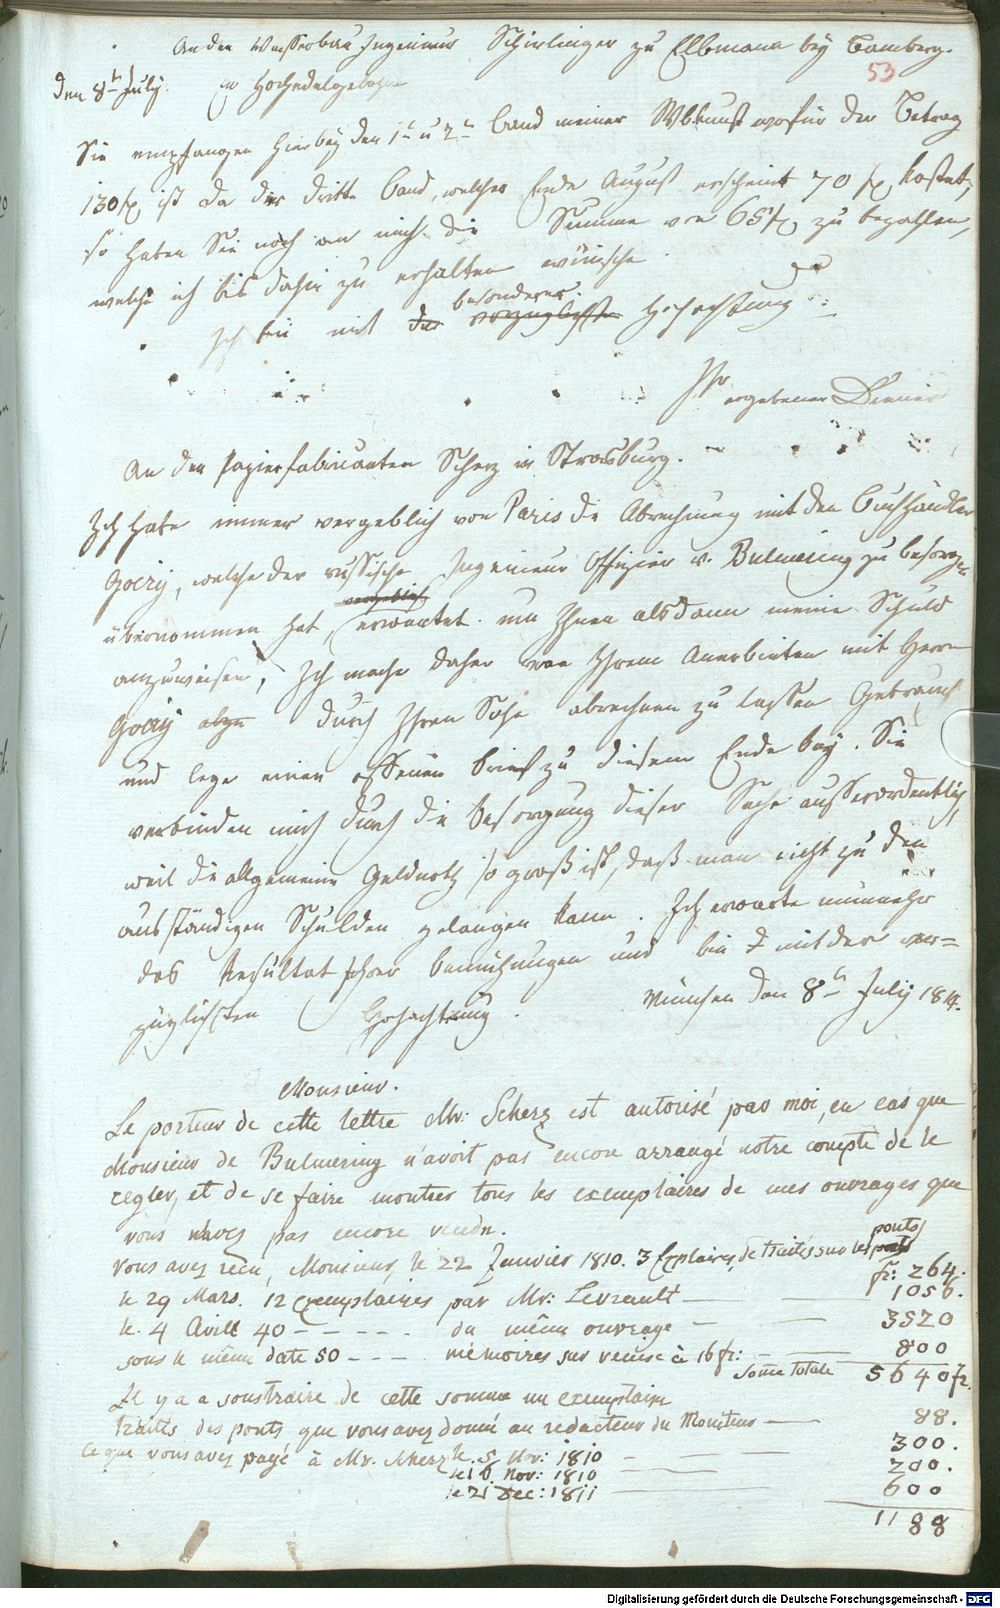 An den Wasserbau Ingenieur Schierlinger zu Eltmann bey Bamberg.
53
den 8ten July. Ew Hochedelgebohren
Sie empfangen hierbey den 1t u 2ten Band meiner Wbkunst wofür der Betrag
130 f ist da der dritte Band, welcher Ende August erscheint 70 f kostet,
so haben Sie noch an mich die Summe von 65 f zu bezahlen,
welche ich bis dahin zu erhalten wünsche.
besonderer
Ich bin mit der vorzüglichsten Hochachtung
Ihr
ergebener Diener
An den Papierfabricanten Scherz in Strasburg.
Ich habe immer vergeblich von Paris die Abrechnung mit den Buchhändler
Goery, welche der russische Ingenieur Offizier v. Bulmering zu besorgen
übernommen hat, vergeblich erwartet. um Ihnen alsdann meine Schuld
anzuweisen, Ich mache daher von Ihrem Anerbieten mit Herrn
Goery durch Ihren Sohn abrechnen zu lassen Gebrauch
und lege einen offenen Brief zu diesem Ende bey. Sie
verbinden mich durch die Besorgung dieser Sache ausserordentlich,
weil die allgemeine Geldnoth so groß ist, daß man nicht zu den
ausständigen Schulden gelangen kann. Ich erwarte nunmehr
das Resultat Ihrer bemühungen und bin mit der vor=
züglichsten Hochachtung. München den 8ten July 1814.
Monsieur.
Le porteur de cette lettre Mr: Scherz est autorisé par moi, en cas que
Monsieur de Bulmering n'avoit pas encore arrangé notre compte de le
regler, et de se faire montrer tous les exemplaires de mes ouvrages que
vous n'avez pas encore vendu.
ponts
Vous avez reçu, Monsieur, le 22 Janvier 1810. 3 Explaires, de traités sur les ponts
fr: 264.
le 29 Mars. 12 exemplaires par Mr: Levrault — — 1056.
le 4 Avill 40 - - - - - du même ouvrage — — 3520
sous le même date 50 - - - mémoires sur venise à 16 fr: — — 800
Some totale 5640 fr.
Il y a a soustraire de cette somme un exemplaire
traités des ponts que vous avez donné au redacteur du Moniteur — 88.
Ce que vous avez payé à Mr. Scherz le. 5 Nov: 1810 — — 300.
le 16 Nov: 1810 — — 200.
le 21 Dec: 1811 — 600
1188
Digitalisierung gefördert durch die Deutsche Forschungsgemeinschaft - DFG